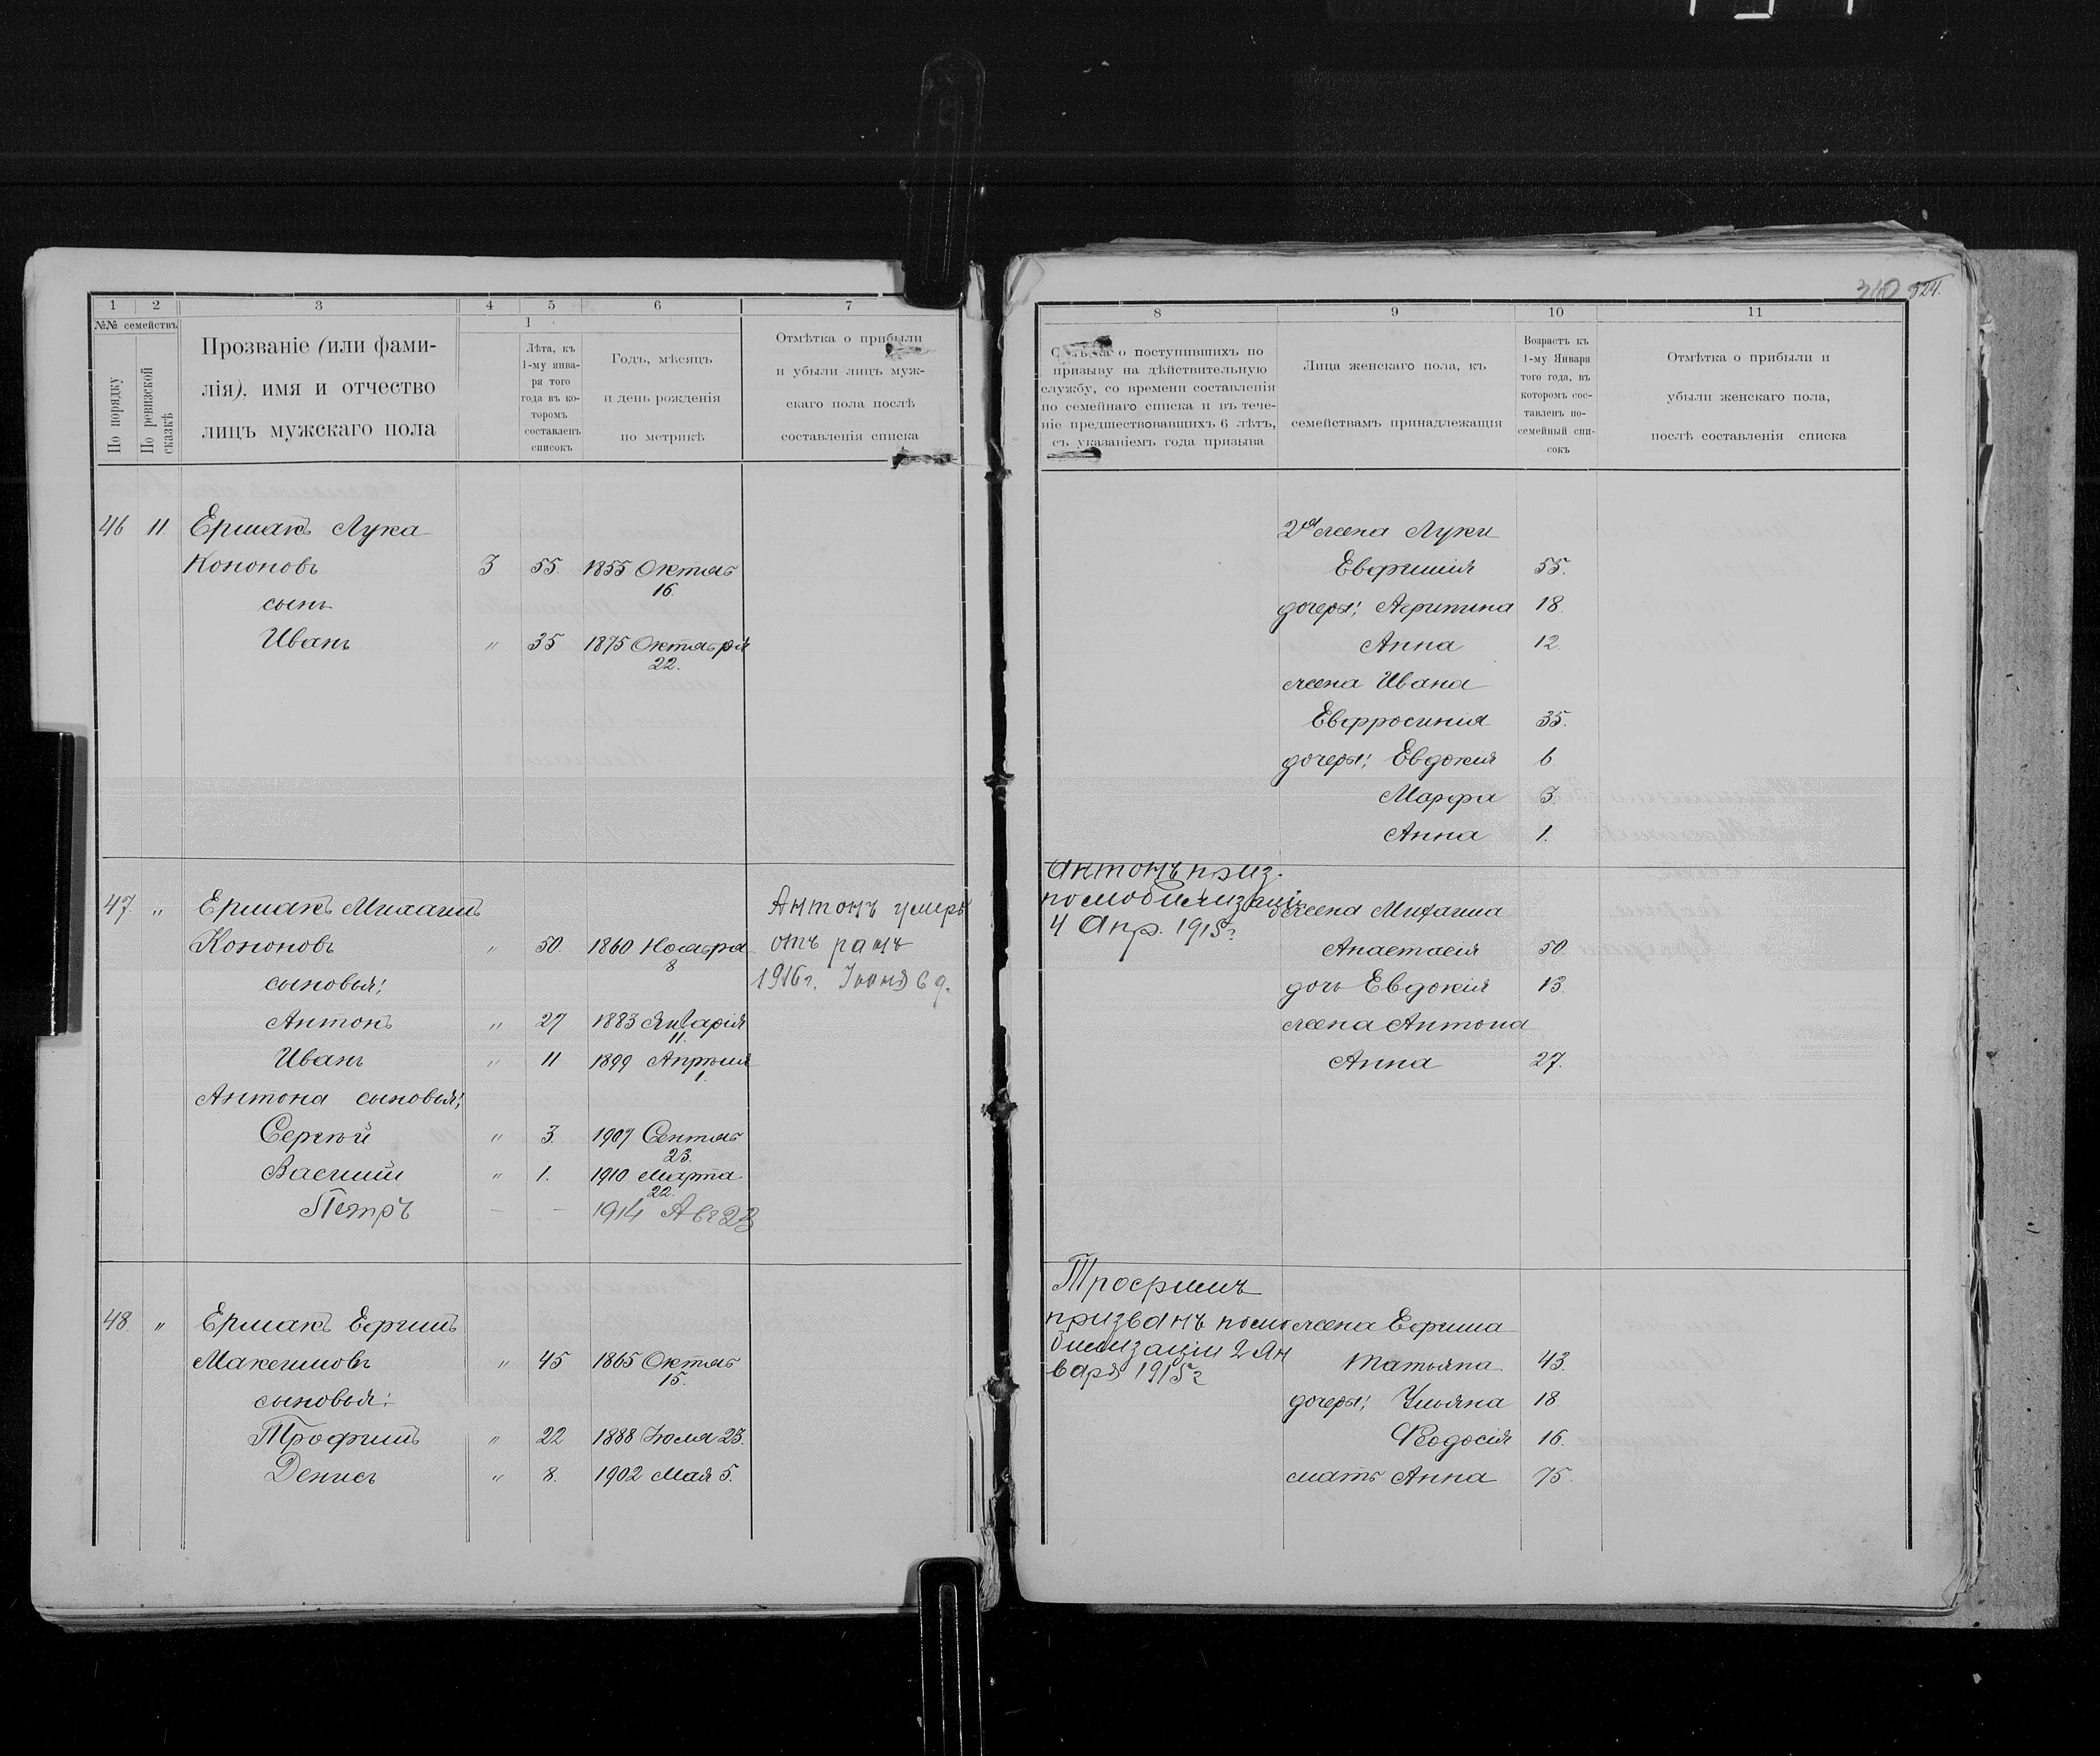 1 2 3 4 5 6 7
№№ семействъ
По порядку
По ревизской сказкѣ
Прозваніе (или фами-
лія), имя и отчество
лицъ мужскаго пола
1
Лѣта, къ
1-му янва-
ря того
года въ ко-
торомъ
составленъ
списокъ
Годъ, мѣсяцъ
и день рожденія
по метрикѣ
Отмѣтка о прибыли
и убыли лицъ муж-
скаго пола послѣ
составленія списка
46 11 Ермакъ Лука
Кононовъ 3 55. 1855 Октяб
16.
сынъ
Иванъ " 35 1875 Октября
22.
47 " Ермакъ Михаилъ
Кононовъ " 50. 1860 Ноября
8
сыновья:
Антонъ " 27 1883 Января
11.
Иванъ " 11 1899 Апрѣля
1.
Антона сыновья:
Сергѣй " 3. 1907 Сентяб
23.
Василій " 1. 1910 Марта
22.
Петръ – – 1914 Авг 23
Антонъ умеръ
отъ ранъ
1916г. Іюня 6 д.
48. " Ермакъ Ефимъ
Максимовъ " 45 1865 Октяб
15.
сыновья:
Трофимъ " 22 1888 Іюля 23.
Денисъ " 8. 1902 Мая 5.
310 324.
8 9 10 11
о поступившихъ по
призыву на дѣйствительную
службу, со времени составленія
по семейнаго списка и въ тече-
ніе предшествовавшихъ 6 лѣтъ,
съ указаніемъ года призыва
Лица женскаго пола, къ
семействамъ принадлежащія
Возрастъ къ
1-му Января
того года, въ
которомъ сос-
тавленъ по-
семейный спи-
сокъ
Отмѣтка о прибыли и
убыли женскаго пола,
послѣ составленія списка
2я жена Луки
Евфимія 55.
дочери: Агрипина 18.
Анна 12.
жена Ивана
Евфросинія 35.
дочери: Евдокія 6
Марфа 3.
Анна 1.
Антонъ приз.
по мобилизаціи
4 Апр. 1915г
жена Михаила
Анастасія 50
дочь Евдокія 13.
жена Антона
Анна 27.
Трофимъ
призванъ по мо
билизаціи 2 Ян
варя 1915г
жена Ефима
Татьяна 43.
дочери: Ульяна 18
Ѳеодосія 16.
мать Анна 75.